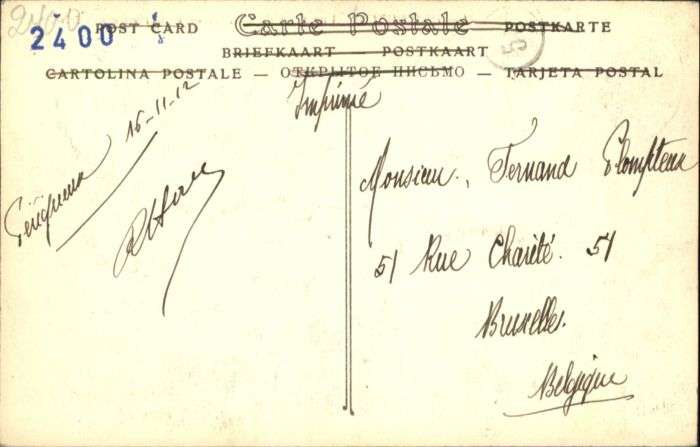 2400
POST CARD Carte Postale POSTKARTE
BRIEFKAART POSTKAART
CARTOLINA POSTALE — ОТКРЫТОЕ ПИСЬМО — TARJETA POSTAL
Imprimé
5
15-11-12
Monsieur, Fernand Plompteux
51 Rue Charité. 51
Bruxelles.
Belgique